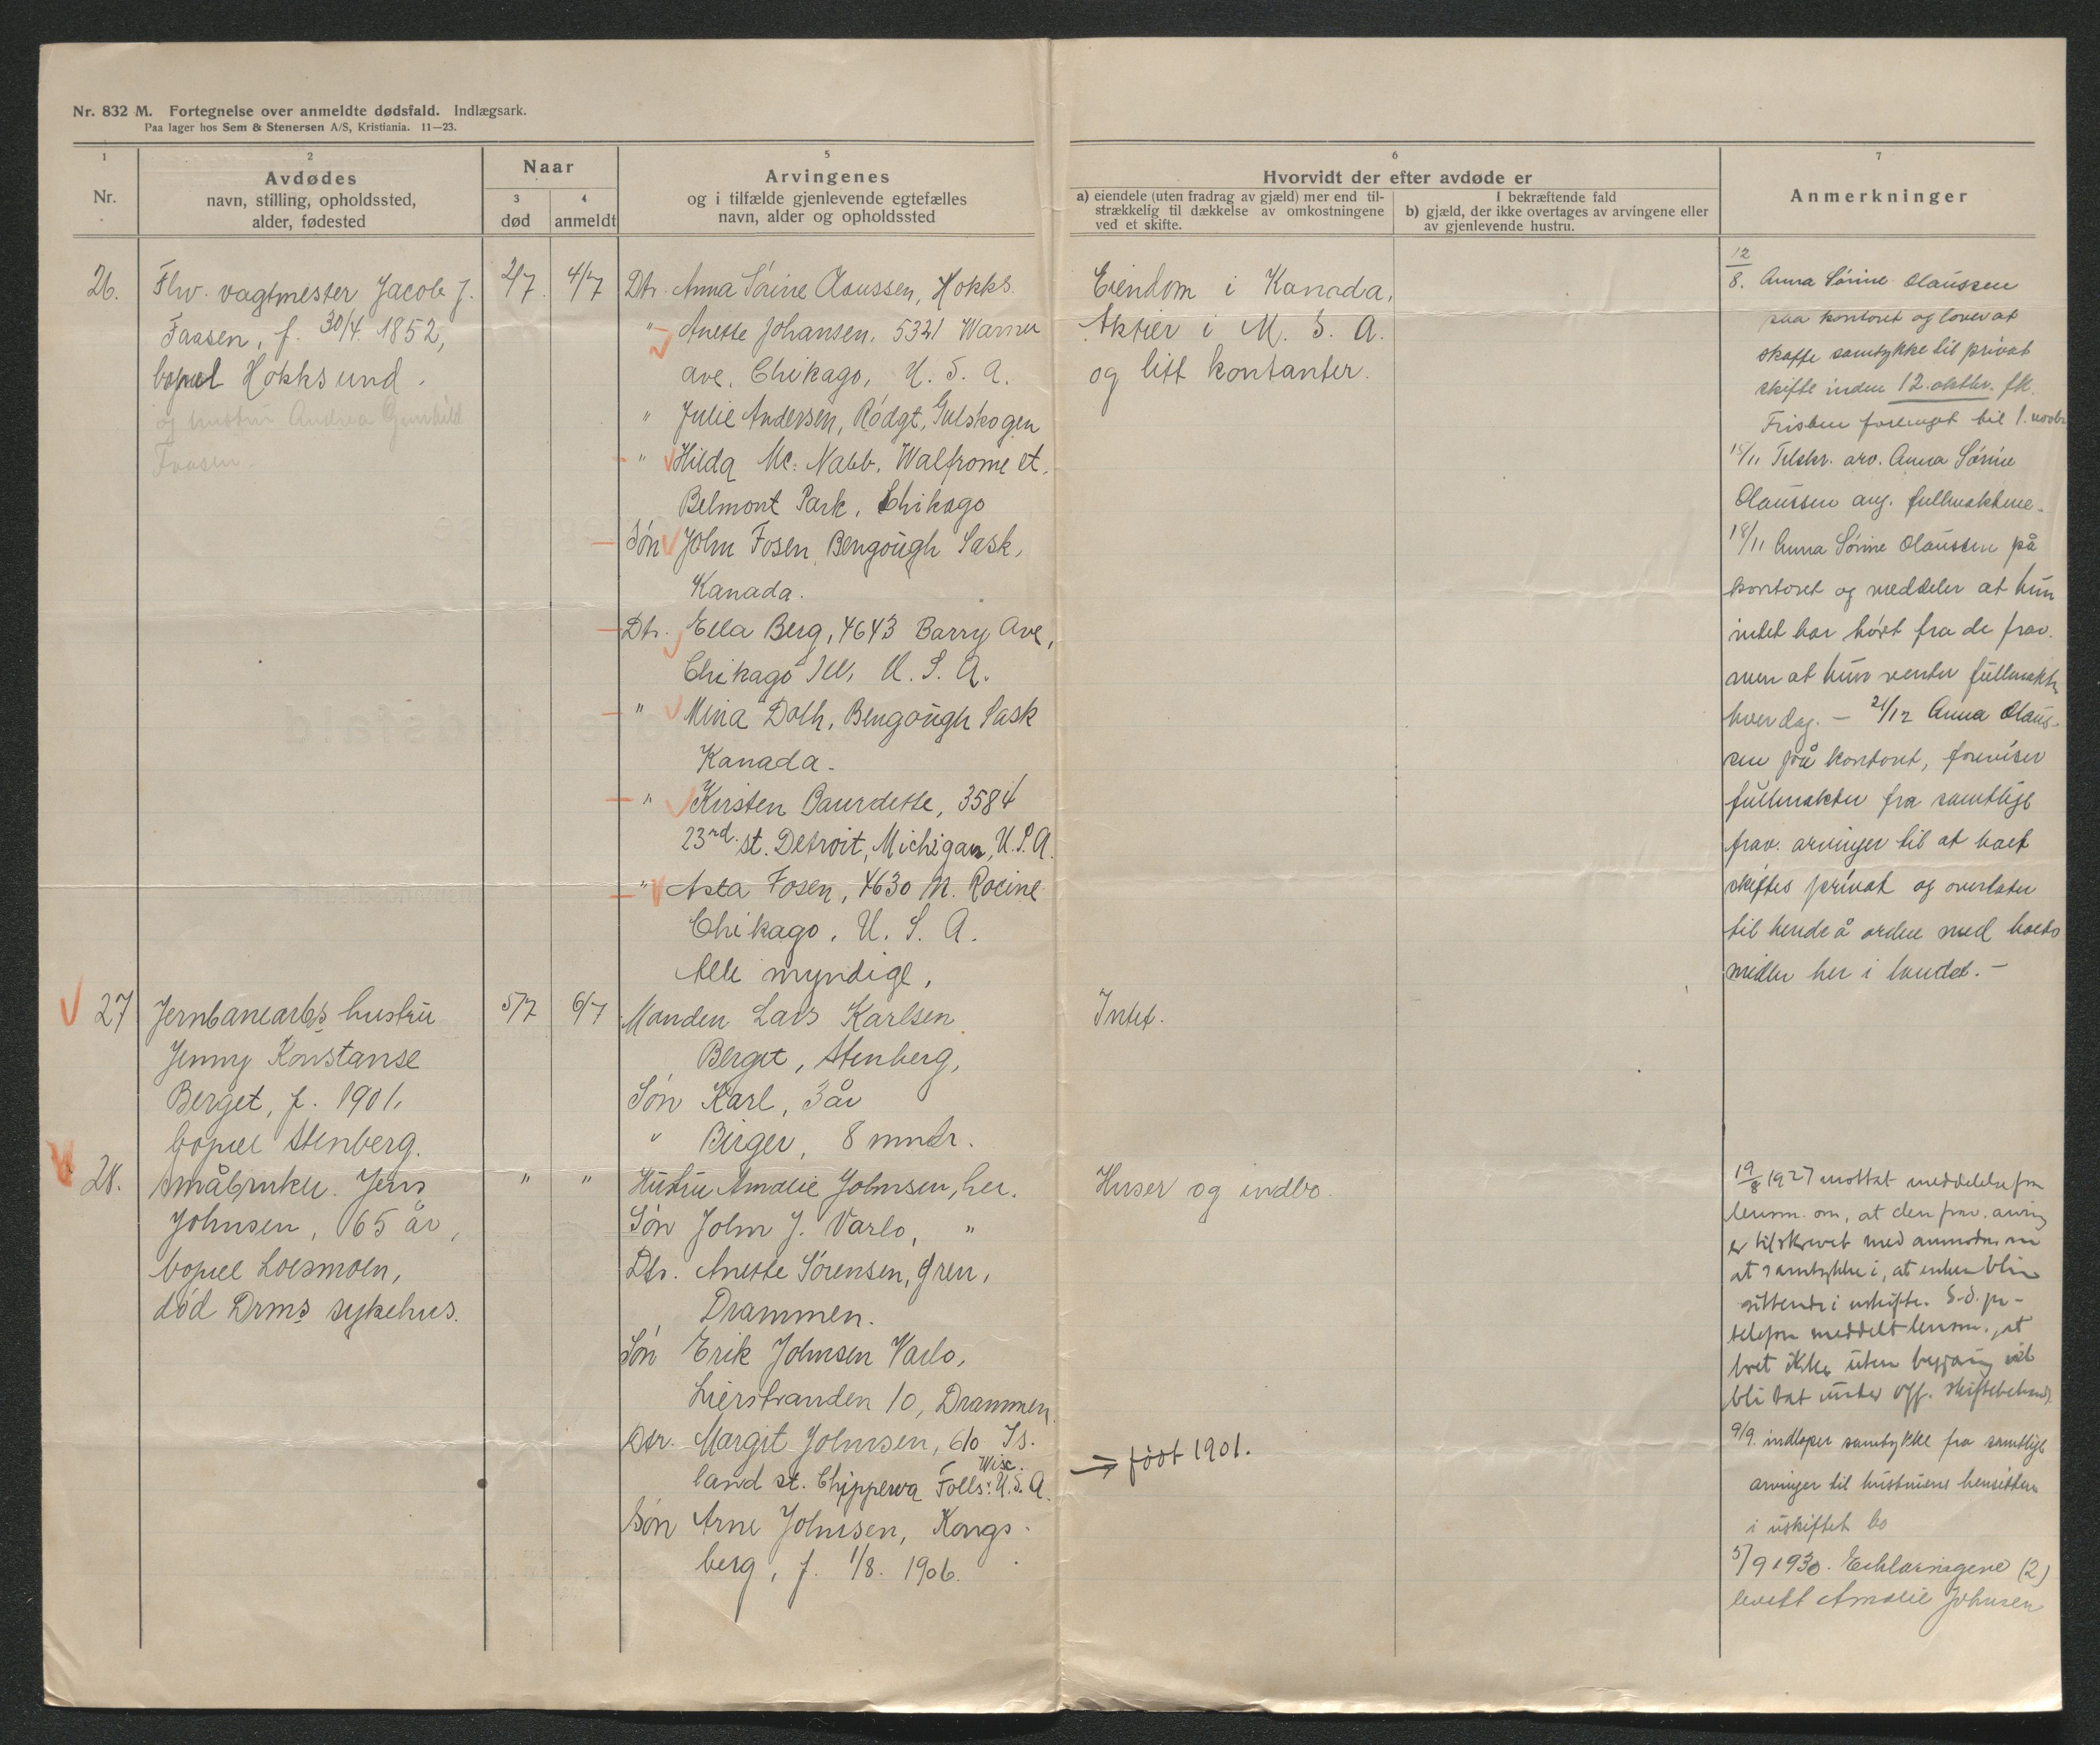 Nr. 832 M. Fortegnelse over anmeldte dødsfald. Indlægsark.
Paa lager hos Sem & Stenersen A/S, Kristiania. 11—23.
1
Nr.
2
Avdødes
navn, stilling, opholdssted,
alder, fødested
Naar
3
død
4
anmeldt
5
Arvingenes
og i tilfælde gjenlevende egtefælles
navn, alder og opholdssted
6
Hvorvidt der efter avdøde er
a) eiendele (uten fradrag av gjæld) mer end til-
strækkelig til dækkelse av omkostningene
ved et skifte.
I bekræftende fald
b) gjæld, der ikke overtages av arvingene eller
av gjenlevende hustru.
7
Anmerkninger
26.
Fhv. vagtmester Jacob J.
Faasen, f. 30/4 1852,
bopæl Hokksund.
og hustru Andrea Gunhild
Faasen.
2/7
4/7
Dtr. Anna Sørine Olaussen, Hokks.
" Anette Johansen, 5321 Warner
ave, Chikago, U. S. A.
" Julie Andersen, Rødgt, Gulskogen
" Hilda Mc. Nabb, Walfrome st.
Belmont Park, Chikago
Søn John Fosen, Bengough Sask,
Kanada.
Dtr. Ella Berg, 4643 Barry Ave,
Chikago Ill, U. S. A.
" Mina Doth, Bengough Sask
Kanada.
" Kirsten Baurdette, 3584
23rd st. Detroit, Michigan, U.S.A.
" Asta Fosen, 4630 N. Racine
Chikago, U. S. A.
Alle myndige,
Eiendom i Kanada,
Aktier i U. S. A.
og litt kontanter.
12/8. Anna Sørine Olaussen
paa kontoret og lover at
skaffe samtykke til privat
skifte inden 12. oktbr. fk.
Fristen forlenget til 1. novbr
15/11 Tilskr. arv. Anna Sørine
Olaussen ang. fullmaktene.
18/11 Anna Sørine Olaussen på
kontoret og meddeler at hun
intet har hørt fra de frav.
men at hun venter fullmakt
hver dag. – 21/12 Anna Olaus-
sen på kontoret, foreviser
fullmakter fra samtlige
frav. arvinger til at boet
skiftes privat og overlater
til hende å ordne med boets
midler her i landet. –
27
Jernbanearb.s hustru
Jenny Konstanse
Berget, f. 1901,
bopæl Stenberg.
5/7
6/7
Manden Lars Karlsen
Berget, Stenberg,
Søn Karl, 3 år
" Birger, 8 mndr.
Intet.
28.
Småbruker Jens
Johnsen, 65 år,
bopæl Loesmoen,
død Drms sykehus.
"
"
Hustru Amalie Johnsen, her.
Søn John J. Varlo, "
Dtr. Anette Sørensen, Gren,
Drammen.
Søn Erik Johnsen Varlo,
Lierstranden 10, Drammen
Dtr. Margit Johnsen, 610 Is-
land st. Chippewa Falls: Wisc. U.S.A.
→ født 1901.
Søn Arne Johnsen, Kongs-
berg, f. 1/8. 1906.
Huser og indbo.
19/8 1927 mottat meddelelse fra
lensm. om, at den frav. arving
er tilskrevet med anmodn. om
at samtykke i, at enken blir
sittende i uskifte. S.d. pr.
telefon meddelt lensm., at
boet ikke uten begjæring vil
bli tat under off. skiftebehandl.
9/9. indløper samtykke fra samtlige
arvinger til hustruens hensitten
i uskiftet bo
5/9 1930. Erklæringene (2)
levert Amalie Johnsen